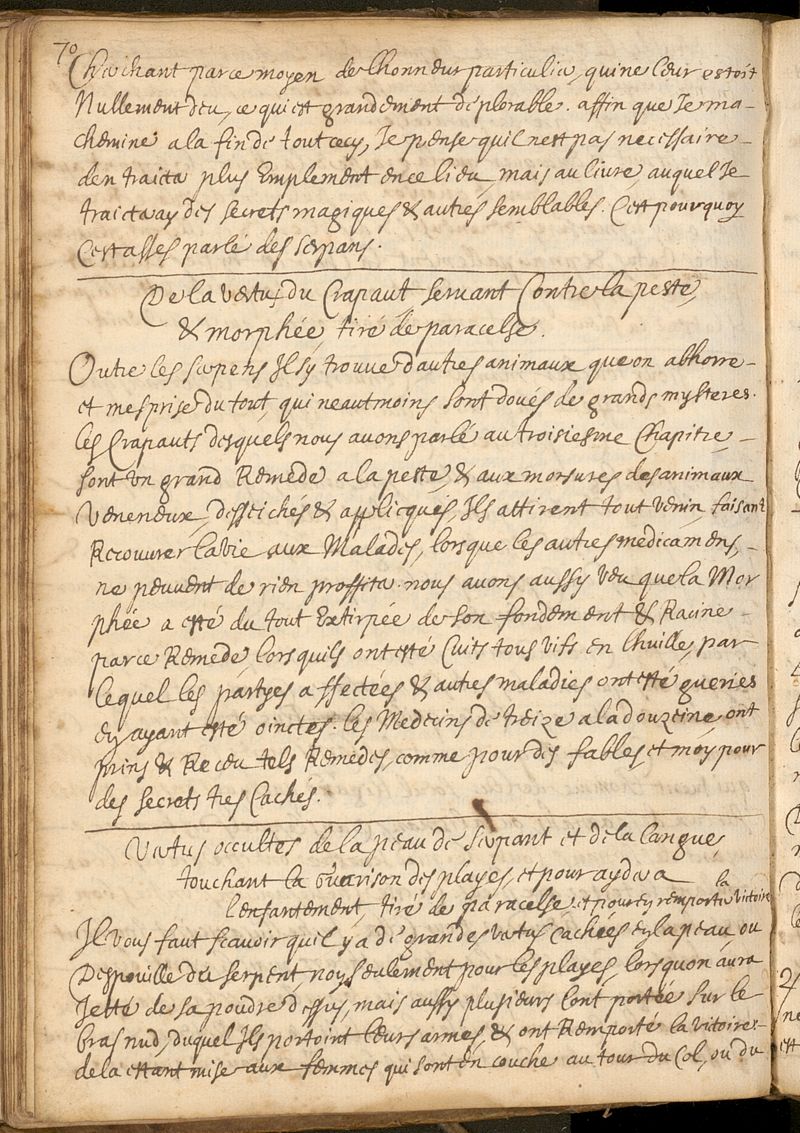 70
Chaichant par ce moyen de lhonneur particulier, qui ne leur estoit
Nullement deu, ce qui est grandement deplorable. affin que Je ma-
chemine a la fin de tout cecy, Je pense quil nest pas necessaire
den traicter plus Emplement en ce lieu mais au livre, auquel Je
traicteray des secrets magiques & autres semblables. Cest pourquoy
C'est asses parlé des serpans.
De la vertu du Crapaut servant Contre la peste,
& morphée, tiré de paracelse.
Outre les serpens Il sy trouve d'autres animaux que on abhorre
et mesprise du tout, qui neautmoins sont doués de grands mysteres.
les Crapauts desquels nous avons parlé au troisiesme Chapitre,
sont un grand Remede a la peste, & aux morsures des animaux
Veneneux, desseichés & applicqués, Ils attirent tout venin, faisant
Recouvrer la vie aux Malades, lorsque les autres medicamens,
ne peuvent de rien proffiter. nous avons aussy veu que la Mor
phée a esté du tout Extirpée de son fondement & Racine
par ce Remede, lors quils ont esté Cuits tous vifs en lhuille, par
lequel les partyes affectées & autres maladies ont esté gueries
en ayant esté ointes. les Medecins de treize a la douzeine ont
prins & Receu tels Remedes, comme pour des fables et moy pour
des secrets tres Cachés.
Vertus occultes de la peau de Serpant et de la langue,
touchant la Guerison des playes, et pour ayder a
lenfantement, tiré de paracelse, et pour en remporter la victoire
Il vous faut scavoir quil y a de grandes vertus Cachées en la peau, ou
Despouille du serpent, non seulement pour les playes, lorsquon aura
Jetté de sa poudre dessus, mais aussy plusieurs lont portée sur le
bras nud, duquel Ils portoint leurs armes, & ont Remporté la vitoire
de la estant mise aux femmes qui sont en couche au tour du Col, ou du